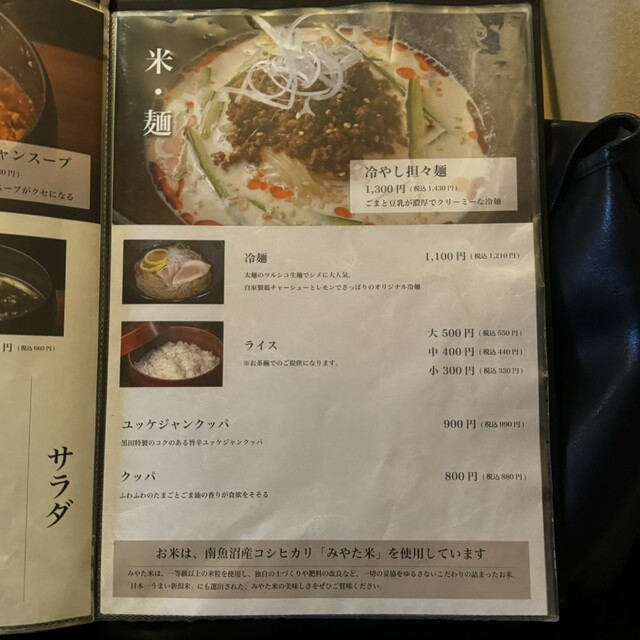 ャンスープ
0円）
スープがクセになる
円（税込 660 円）
サラダ
米・麺
冷やし担々麺
1,300 円（税込 1,430 円）
ごまと豆乳が濃厚でクリーミーな冷麺
冷麺 1,100 円（税込 1,210 円）
太麺のツルシコ生麺でシメに大人気。
自家製鶏チャーシューとレモンでさっぱりのオリジナル冷麺
ライス
※お茶碗でのご提供になります。
大 500 円（税込 550 円）
中 400 円（税込 440 円）
小 300 円（税込 330 円）
ユッケジャンクッパ 900 円（税込 990 円）
黒田特製のコクのある旨辛ユッケジャンクッパ
クッパ 800 円（税込 880 円）
ふわふわのたまごとごま油の香りが食欲をそそる
お米は、南魚沼産コシヒカリ「みやた米」を使用しています
みやた米は、一等級以上の米粒を使用し、独自の土づくりや肥料の改良など、一切の妥協をゆるさないこだわりの詰まったお米。
「日本一うまい新潟米」にも選出された、みやた米の美味しさをぜひご賞味ください。